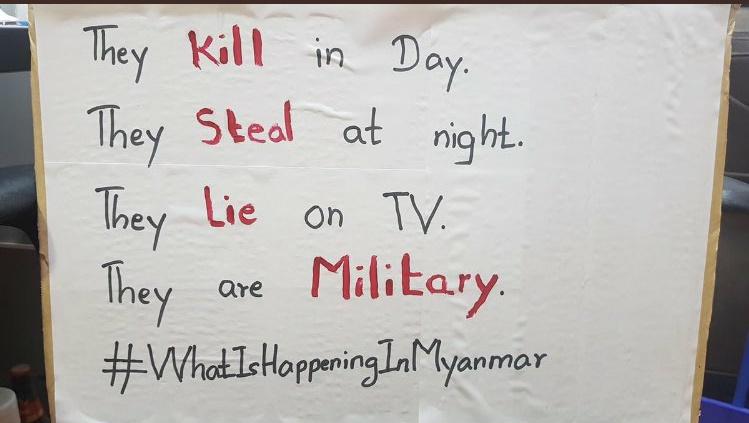 They Kill in Day.
They Steal at night.
They Lie on TV.
They are Military.
#WhatIsHappeningInMyanmar